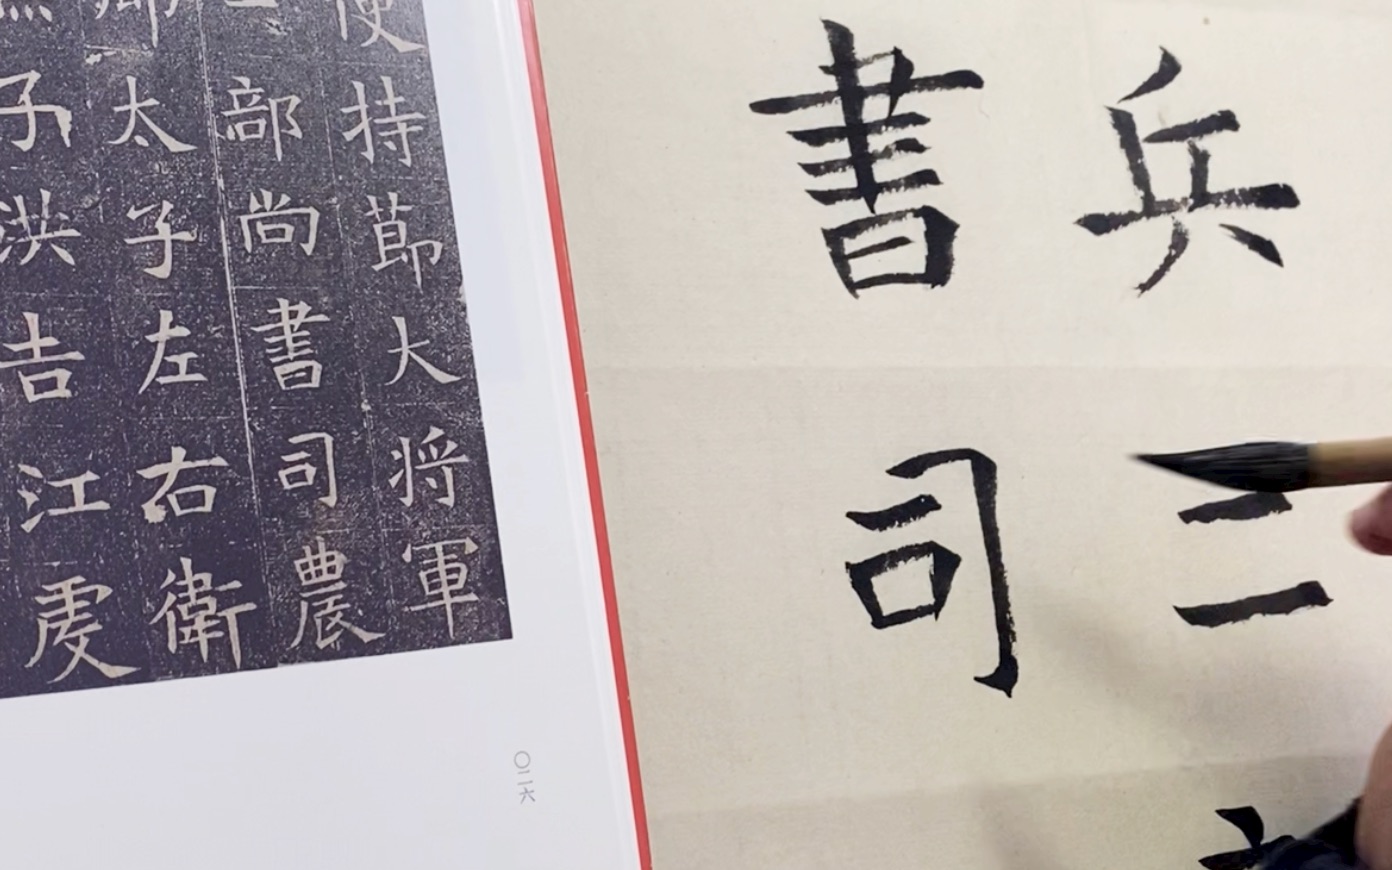 兵二
書司
使持莭大将軍
部尚書司農
卿太子左右衛
子洪吉江虔
〇二六